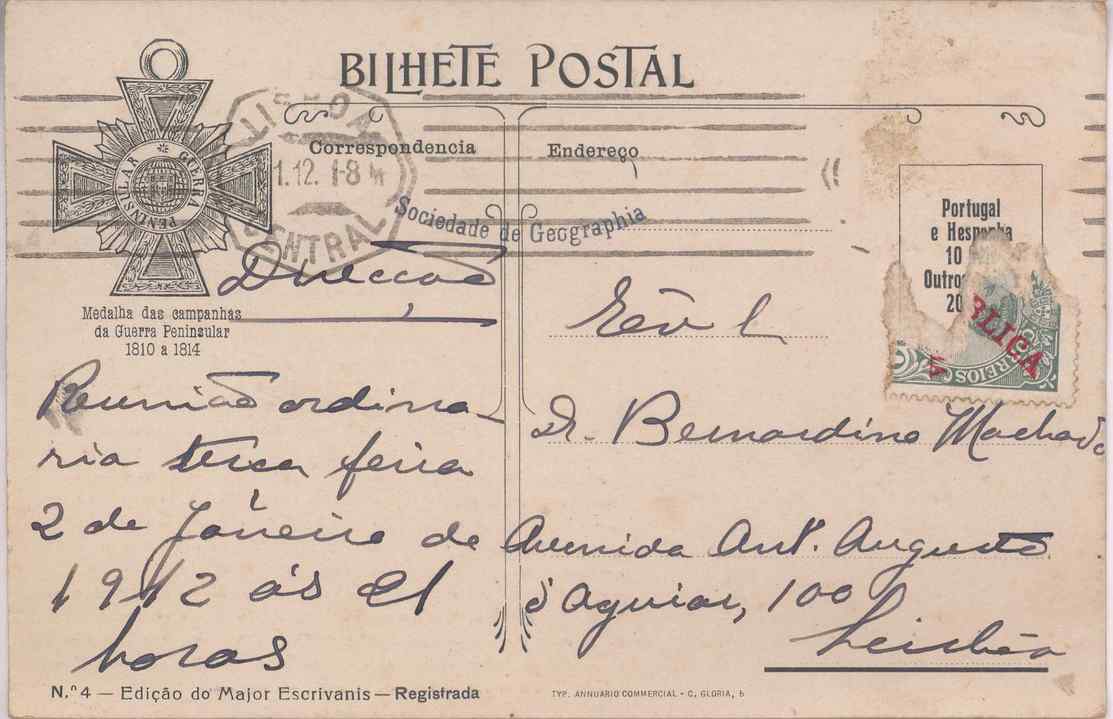 BILHETE POSTAL
LISBOA
1.12. 1-8 M
CENTRAL
GUERRA PENINSULAR
Medalha das campanhas
da Guerra Peninsular
1810 a 1814
Correspondencia
Sociedade de Geographia
Direcção
Reunião ordina-
ria terça feira
2 de Janeiro de
1912 ás 21
horas
Endereço
Portugal
e Hespanha
10
Outros
20
BLICA
CORREIOS
Dr. Bernardino Machado
Avenida Antº. Augusto
d'Aguiar, 100
Lisbôa
N.º 4 — Edição do Major Escrivanis — Registrada
TYP. ANNUARIO COMMERCIAL - C. GLORIA, 5